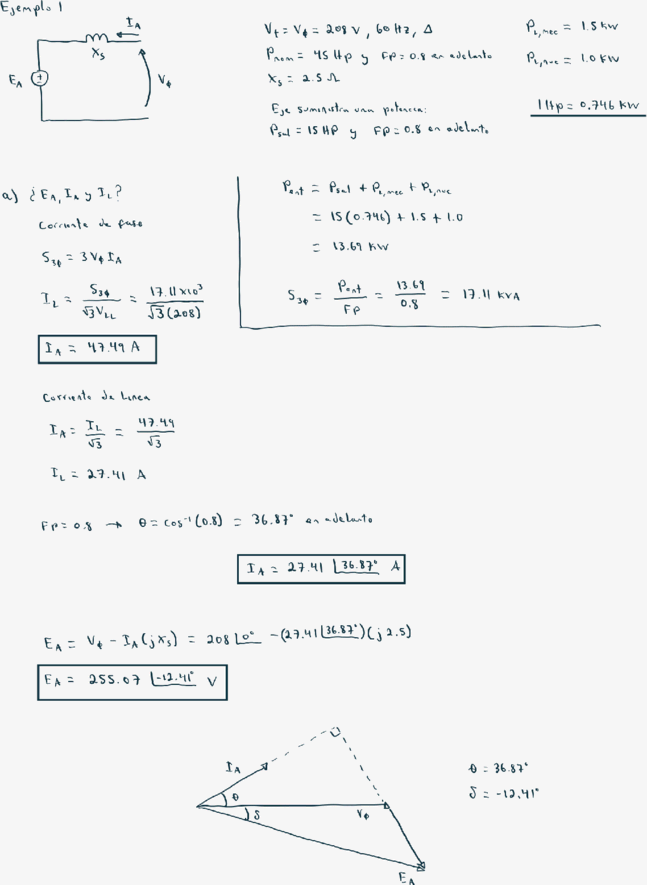 Ejemplo 1
I_A
X_s
E_A
V_φ
V_t = V_φ = 208 V, 60 Hz, Δ
P_nom = 45 Hp y FP = 0.8 en adelanto
X_s = 2.5 Ω
Eje suministra una potencia:
P_sal = 15 HP y FP = 0.8 en adelanto
P_L,mec = 1.5 kW
P_L,nuc = 1.0 kW
1 Hp = 0.746 kW
a) ¿E_A, I_A y I_L?
Corriente de fase
S_3φ = 3 V_φ I_A
I_L = S_3φ / √3 V_LL = 17.11 x10³ / √3 (208)
I_A = 47.49 A
P_ent = P_sal + P_L,mec + P_L,nuc
= 15(0.746) + 1.5 + 1.0
= 13.69 kW
S_3φ = P_ent / FP = 13.69 / 0.8 = 17.11 kVA
Corriente de Linea
I_A = I_L / √3 = 47.49 / √3
I_L = 27.41 A
FP = 0.8 → θ = cos⁻¹(0.8) = 36.87° en adelanto
I_A = 27.41 ∠36.87° A
E_A = V_φ - I_A(jX_s) = 208∠0° - (27.41∠36.87°)(j2.5)
E_A = 255.07 ∠-12.41° V
I_A
θ
δ
V_φ
E_A
θ = 36.87°
δ = -12.41°